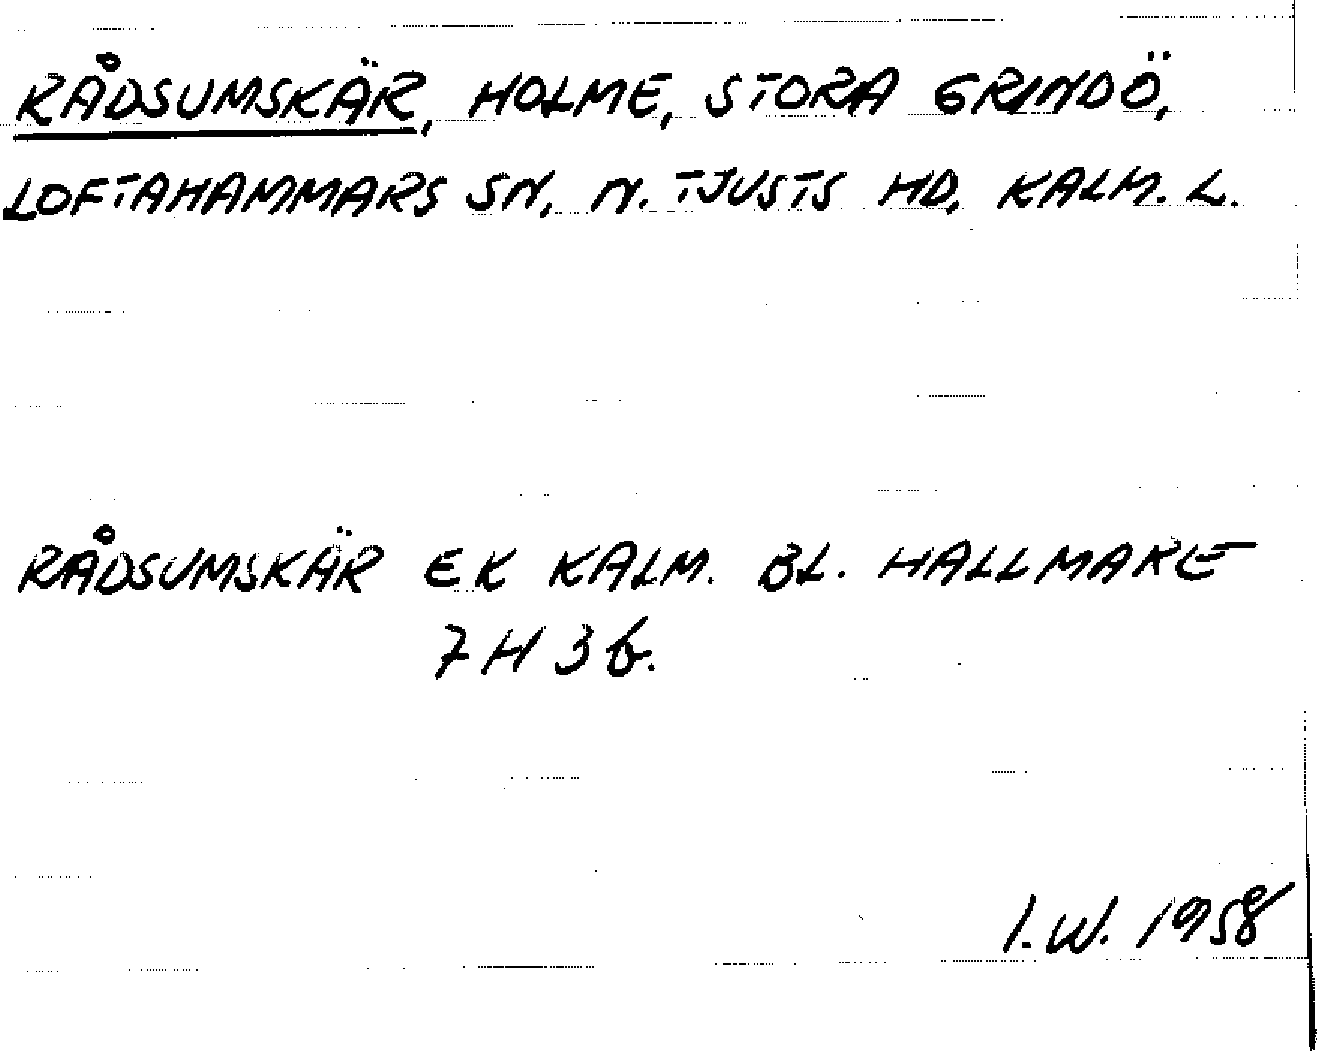 RÅDSUMSKÄR, HOLME, STORA GRINDÖ,
LOFTAHAMMARS SN, N. TJUSTS HD, KALM. L.
RÅDSUMSKÄR EK KALM. BL. HALLMARE
7 H 3 b.
I.W. 1958